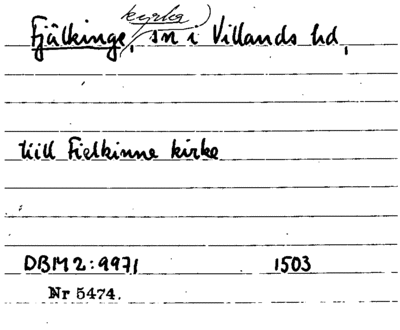 kyrka
Fjälkinge, sn i Villands hd,
till Fielkinne kirke
DBM 2:9971 1503
Nr 5474.